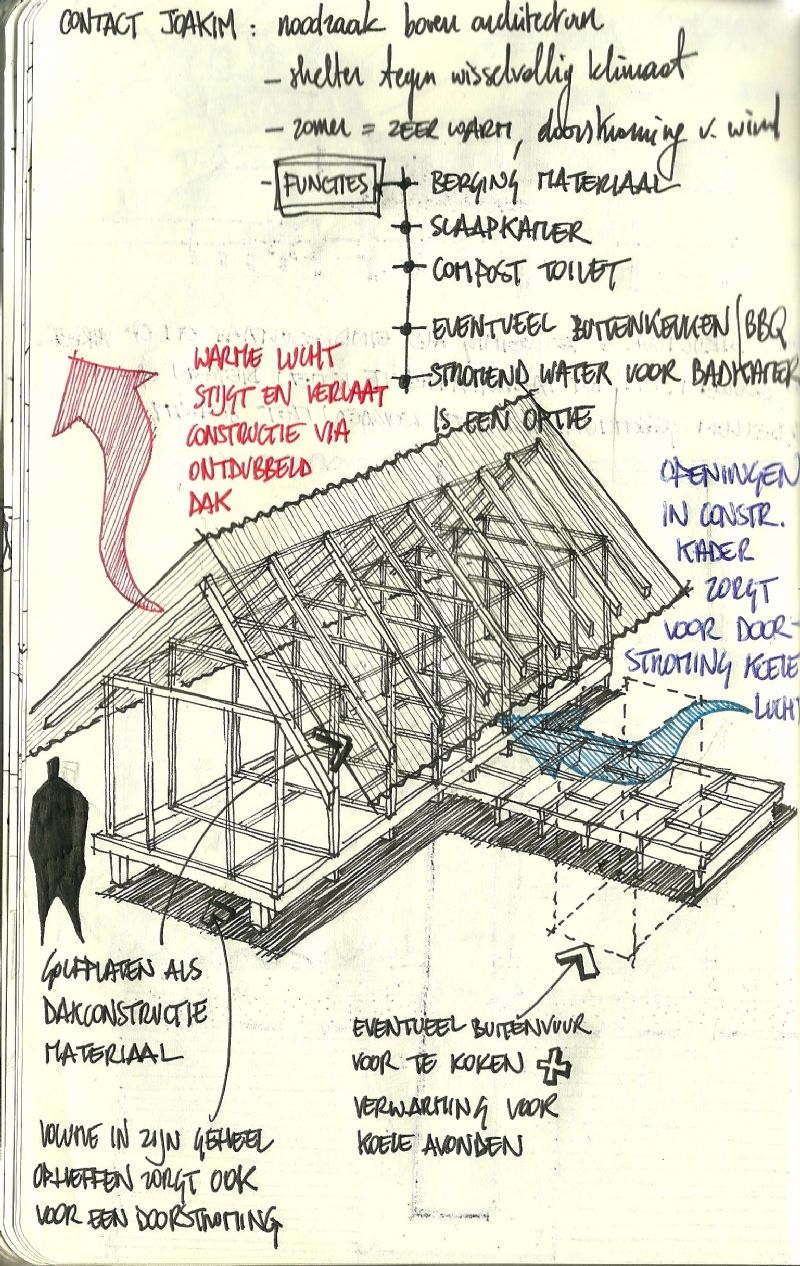 CONTACT JOAKIM : noodzaak boven architectuur
- shelter tegen wisselvallig klimaat
- zomer = ZEER WARM, doorstroming v. wind
- FUNCTIES
BERGING MATERIAAL
SLAAPKAMER
COMPOST TOILET
EVENTUEEL BUITENKEUKEN/BBQ
STROMEND WATER VOOR BADKAMER
IS EEN OPTIE
WARME LUCHT
STIJGT EN VERLAAT
CONSTRUCTIE VIA
ONTDUBBELD
DAK
OPENINGEN
IN CONSTR.
KADER
ZORGT
VOOR DOOR-
STROMING KOELE
LUCHT
GOLFPLATEN ALS
DAKCONSTRUCTIE
MATERIAAL
EVENTUEEL BUITENVUUR
VOOR TE KOKEN +
VERWARMING VOOR
KOELE AVONDEN
VOLUME IN ZIJN GEHEEL
OPHEFFEN ZORGT OOK
VOOR EEN DOORSTROMING